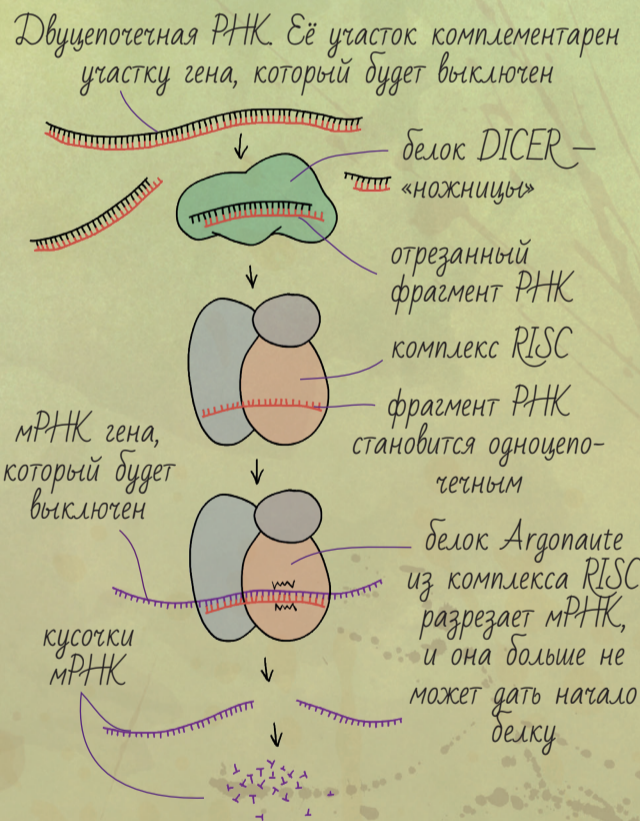 Двуцепочечная РНК. Её участок комплементарен
участку гена, который будет выключен
белок DICER —
«ножницы»
отрезанный
фрагмент РНК
комплекс RISC
фрагмент РНК
становится одноцепо-
чечным
мРНК гена,
который будет
выключен
белок Argonaute
из комплекса RISC
разрезает мРНК,
и она больше не
может дать начало
белку
кусочки
мРНК